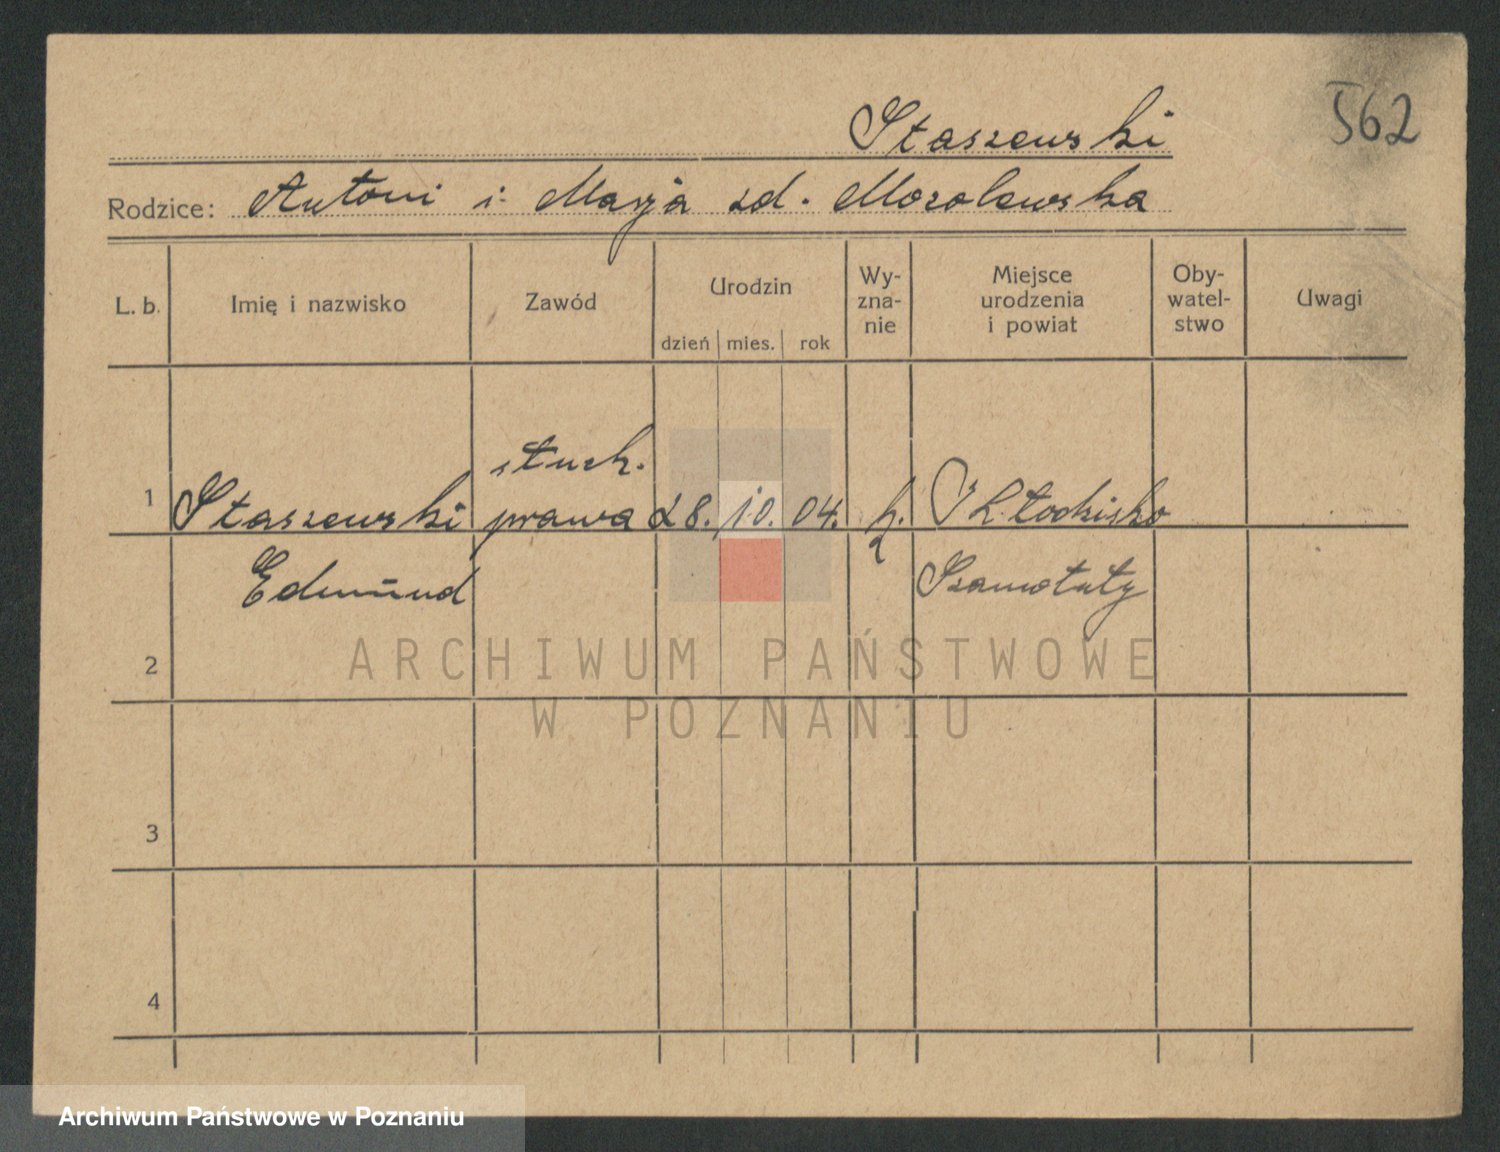 Staszewski 562
Rodzice: Antoni i Marja zd.
L. b. Imię i nazwisko Zawód Urodzin dzień mies. rok Wy-zna-nie Miejsce urodzenia i powiat Oby-watel-stwo Uwagi
słuch.
1 Staszewski prawa 28. 10. 04. k.
Edmund Szamotuły
2
ARCHIWUM PAŃSTWOWE
W POZNANIU
3
4
Archiwum Państwowe w Poznaniu